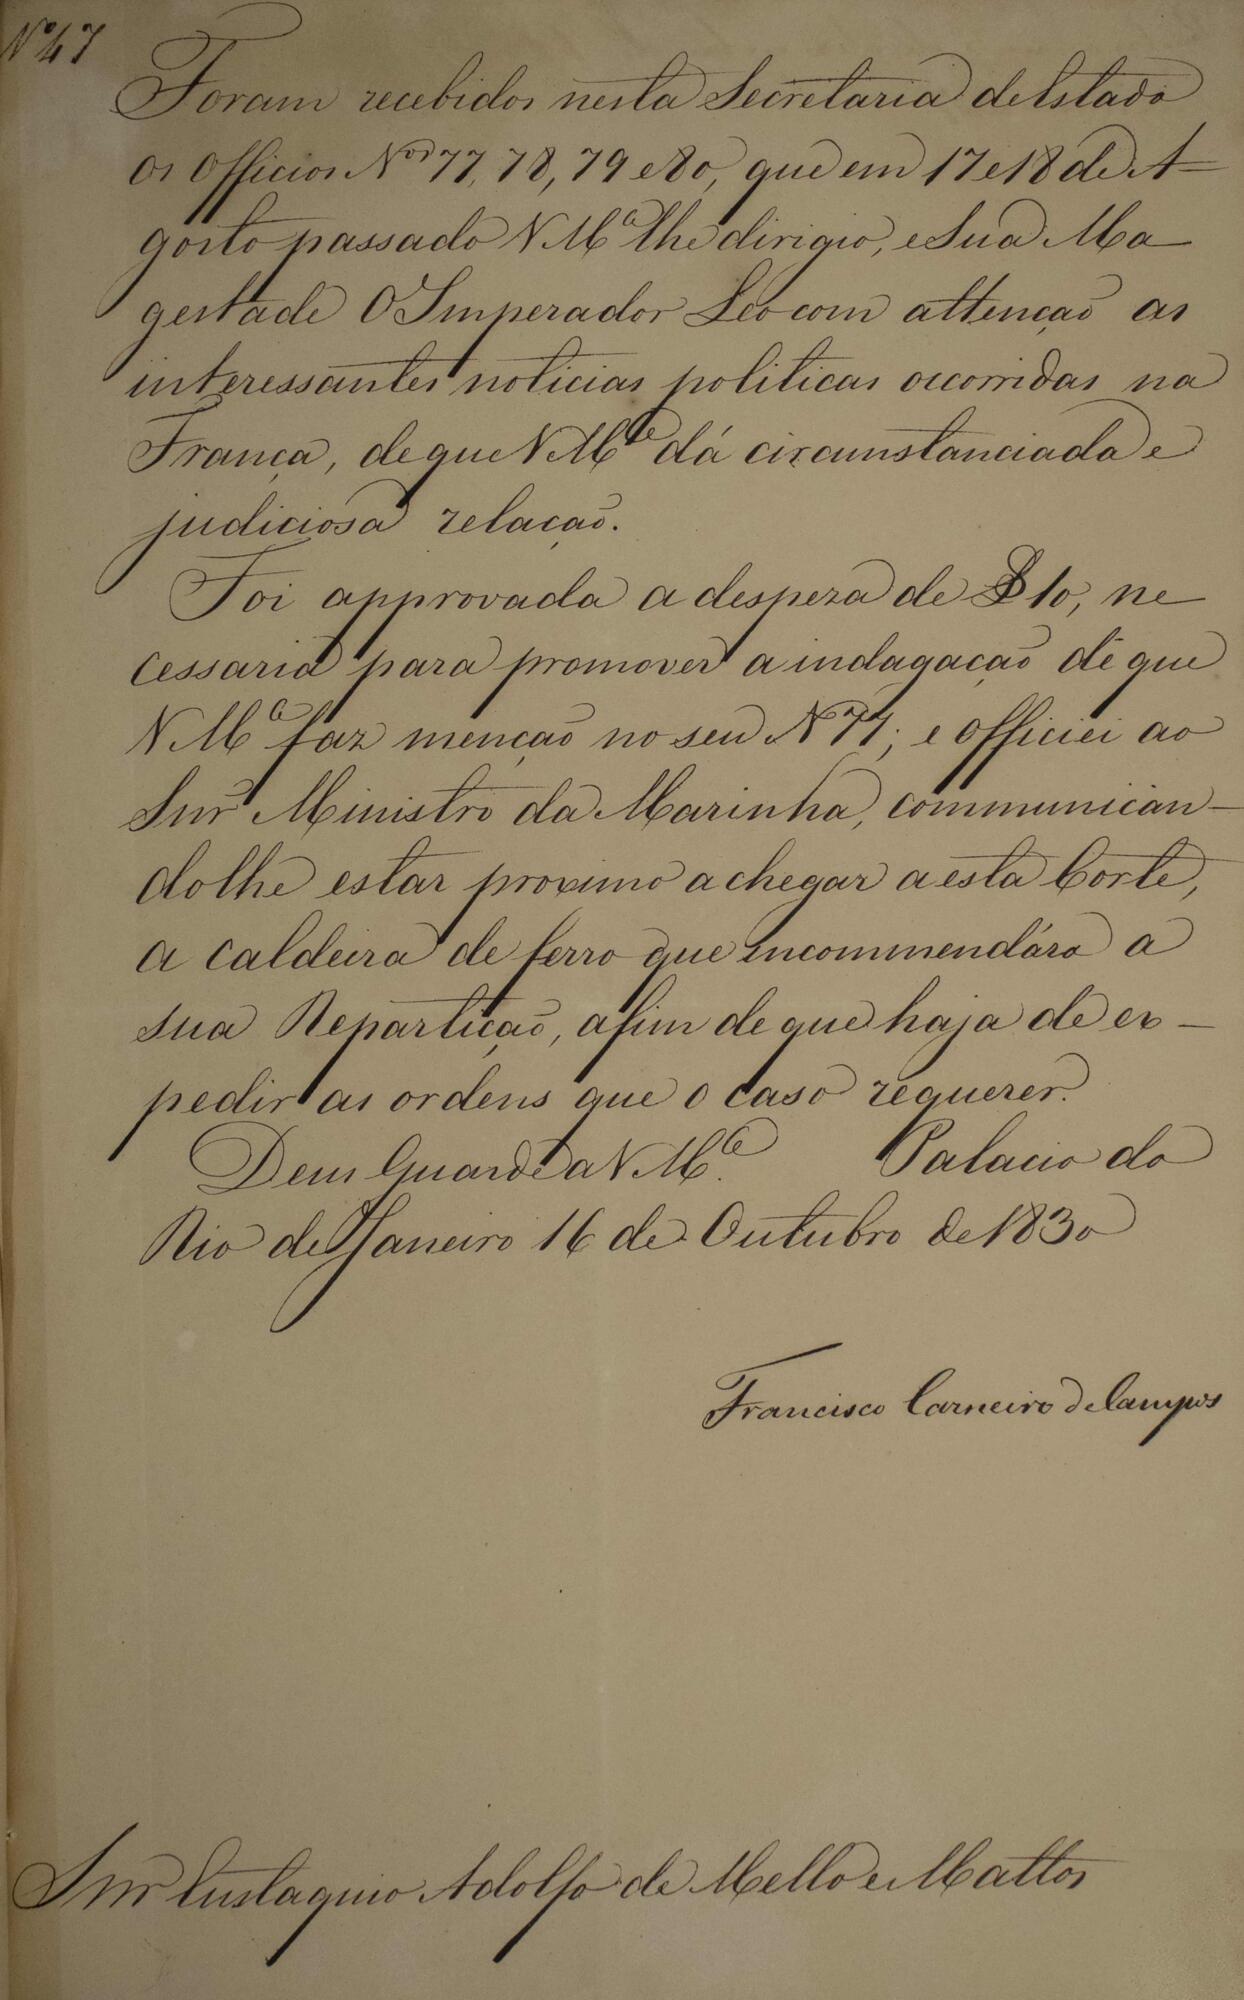 Nº 47
Foram recebidos nesta Secretaria de Estado
os Officios Nos 77, 78, 79 e 80, que em 17 e 18 de A=
gosto passado V Mce lhe dirigio, e Sua Ma-
gestade O Imperador Leo com attenção as
interessantes noticias politicas occorridas na
França, de que V Mce dá circumstanciada e
judiciosa relação.
Foi approvada a despeza de £ 10, ne-
cessaria para promover a indagação de que
V Mce faz menção no seu Nº 77; e officiei ao
Snr Ministro da Marinha, communican-
dolhe estar proximo a chegar a esta Corte,
a caldeira de ferro que encommendára a
sua Repartição, afim de que haja de ex-
pedir as ordens que o caso requerer.
Deus Guarde a V Mce. Palacio do
Rio de Janeiro 16 de Outubro de 1830
Francisco Carneiro de Campos
Snr Eustaquio Adolfo de Mello e Mattos